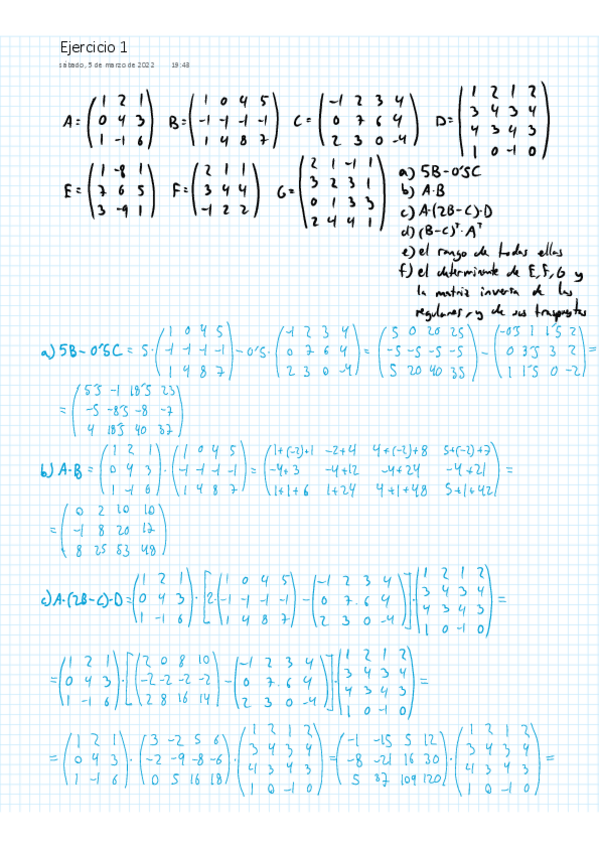 Ejercicio 1
sábado, 5 de marzo de 2022 19:48
A = (1 2 1 / 0 4 3 / 1 -1 6) B = (1 0 4 5 / -1 -1 -1 -1 / 1 4 8 7) C = (-1 2 3 4 / 0 7 6 4 / 2 3 0 -4) D = (1 2 1 2 / 3 4 3 4 / 4 3 4 3 / 1 0 -1 0)
E = (1 -8 1 / 7 6 5 / 3 -9 1) F = (2 1 1 / 3 4 4 / -1 2 2) G = (2 1 -1 1 / 3 2 3 1 / 0 1 3 3 / 2 4 4 1)
a) 5B-0'5C
b) A·B
c) A·(2B-C)·D
d) (B-C)ᵀ·Aᵀ
e) el rango de todas ellas
f) el determinante de E, F, G y
la matriz inversa de las
regulares, y de sus traspuestas
a) 5B-0'5C = 5·(1 0 4 5 / -1 -1 -1 -1 / 1 4 8 7) - 0'5·(-1 2 3 4 / 0 7 6 4 / 2 3 0 -4) = (5 0 20 25 / -5 -5 -5 -5 / 5 20 40 35) - (-0'5 1 1'5 2 / 0 3'5 3 2 / 1 1'5 0 -2) =
= (5'5 -1 18'5 23 / -5 -8'5 -8 -7 / 4 18'5 40 37)
b) A·B = (1 2 1 / 0 4 3 / 1 -1 6)·(1 0 4 5 / -1 -1 -1 -1 / 1 4 8 7) = (1+(-2)+1 -2+4 4+(-2)+8 5+(-2)+7 / -4+3 -4+12 -4+24 -4+21 / 1+1+6 1+24 4+1+48 5+1+42) =
= (0 2 10 10 / -1 8 20 17 / 8 25 53 48)
c) A·(2B-C)·D = (1 2 1 / 0 4 3 / 1 -1 6)·[2·(1 0 4 5 / -1 -1 -1 -1 / 1 4 8 7) - (-1 2 3 4 / 0 7 6 4 / 2 3 0 -4)]·(1 2 1 2 / 3 4 3 4 / 4 3 4 3 / 1 0 -1 0) =
= (1 2 1 / 0 4 3 / 1 -1 6)·[(2 0 8 10 / -2 -2 -2 -2 / 2 8 16 14) - (-1 2 3 4 / 0 7 6 4 / 2 3 0 -4)]·(1 2 1 2 / 3 4 3 4 / 4 3 4 3 / 1 0 -1 0) =
= (1 2 1 / 0 4 3 / 1 -1 6)·(3 -2 5 6 / -2 -9 -8 -6 / 0 5 16 18)·(1 2 1 2 / 3 4 3 4 / 4 3 4 3 / 1 0 -1 0) = (-1 -15 5 12 / -8 -21 16 30 / 5 37 109 120)·(1 2 1 2 / 3 4 3 4 / 4 3 4 3 / 1 0 -1 0) =